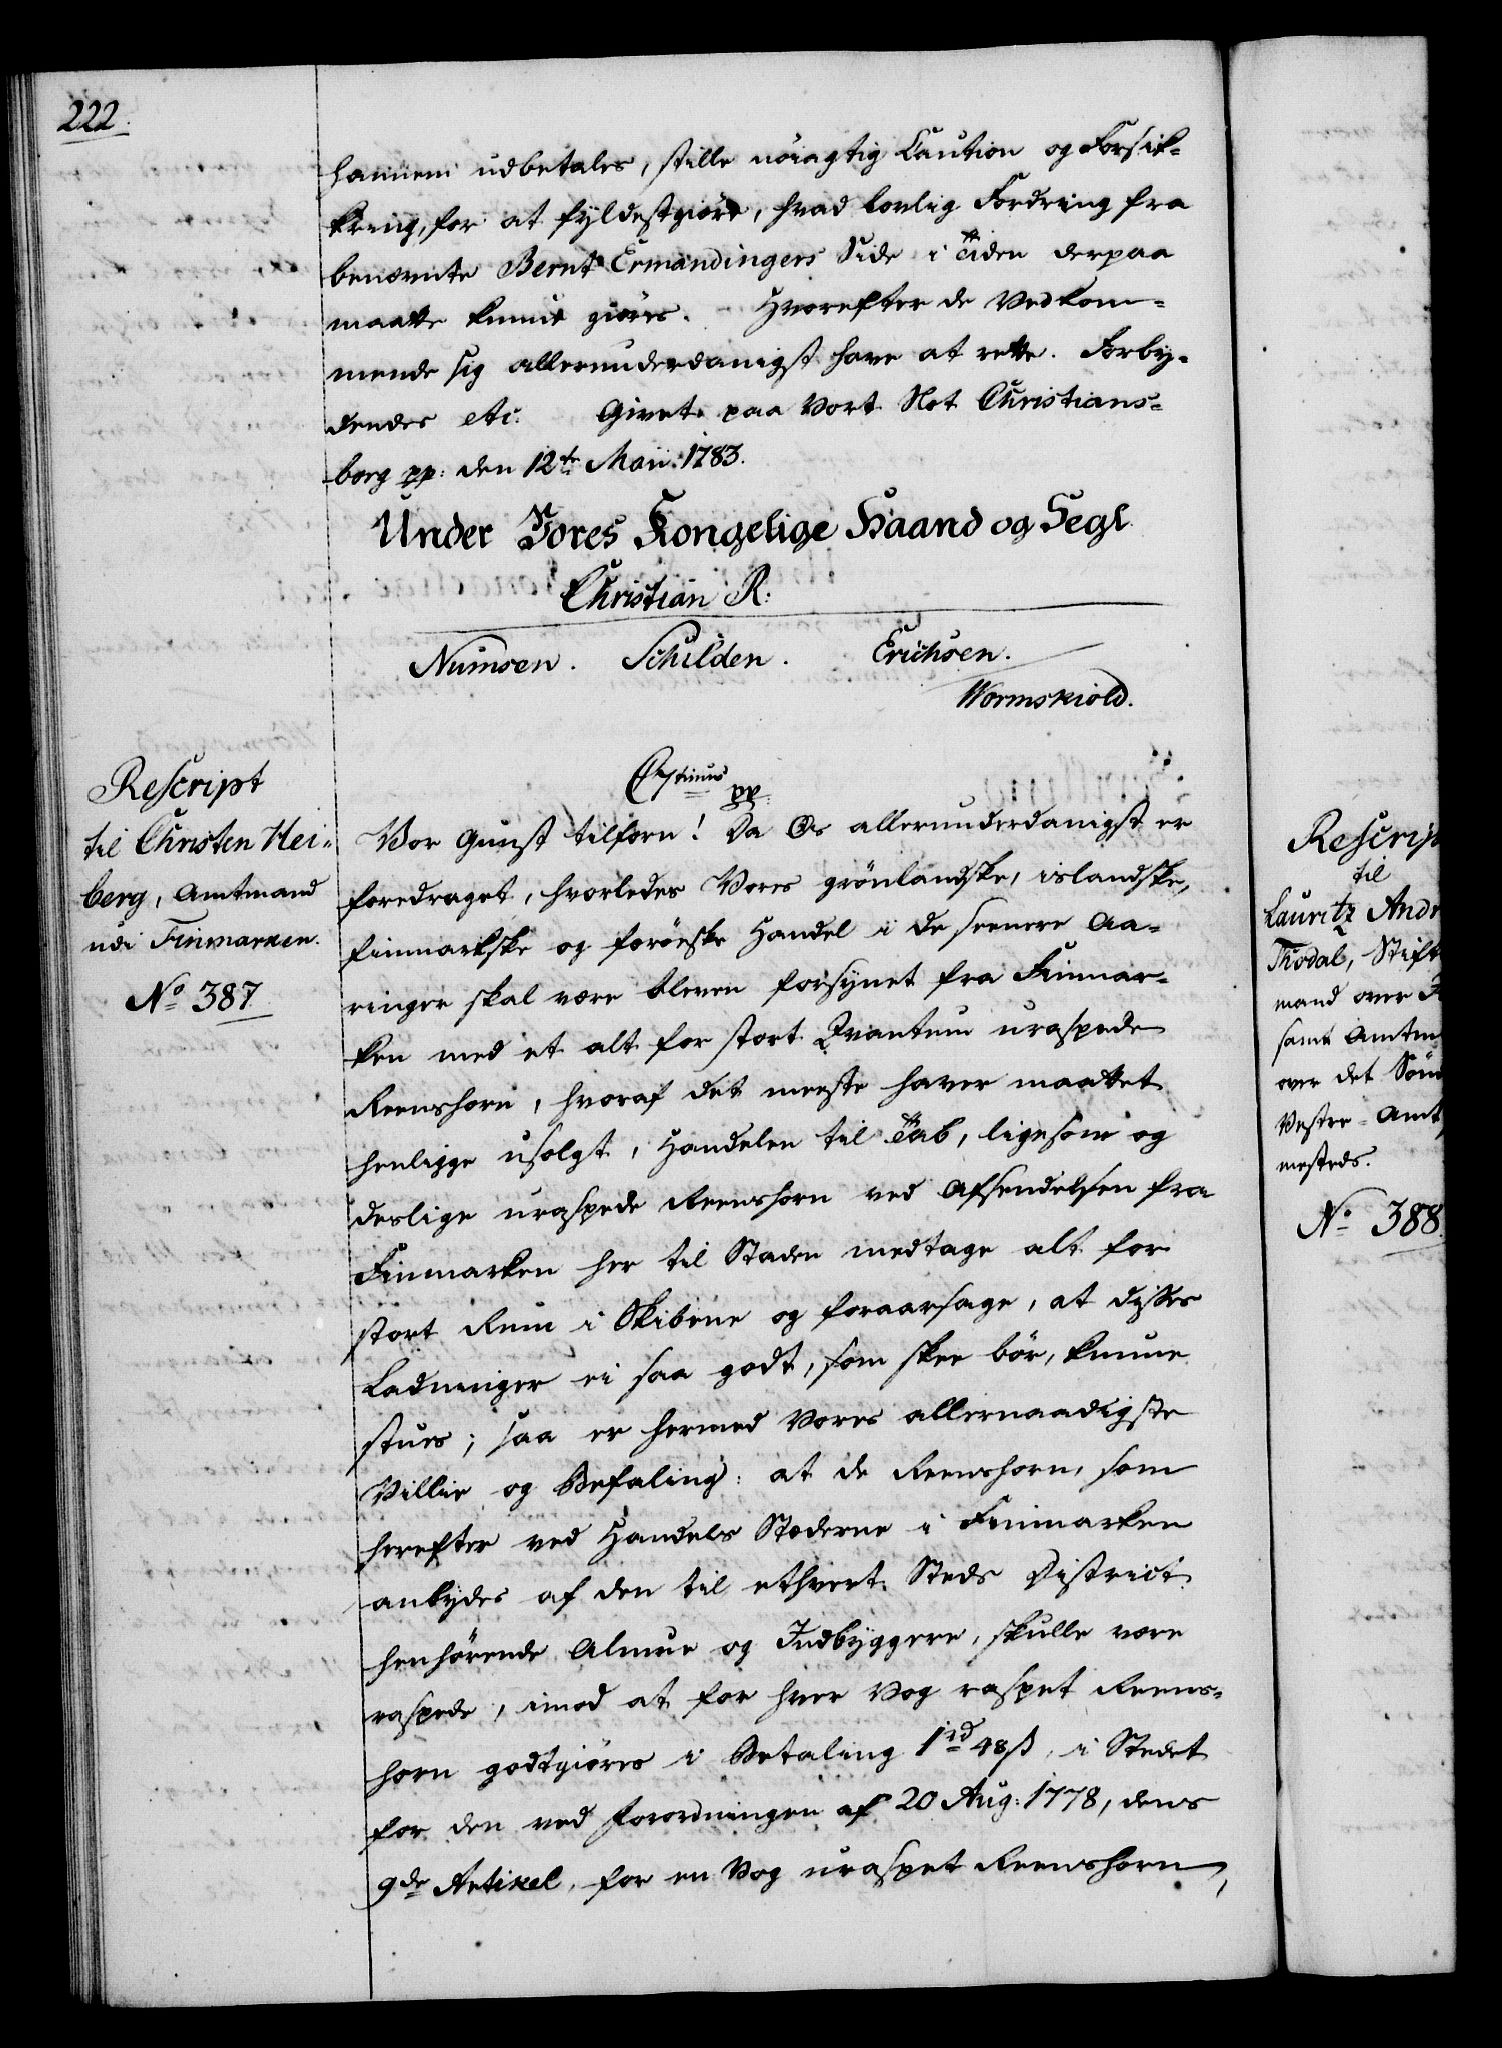 222.
hannem udbetales, stille nöiagtig Caution og Forsik-
kring, for at fyldestgiöre, hvad lovlig Fordring fra
benævnte Bernt Ermandingers Side i Tiden derpaa
maatte kunne giöres. Hvorefter de Vedkom-
mende sig allerunderdanigst have at rette. Forby-
dendes etc. Givet paa Vort Slot Christians-
borg pp: den 12te Maii 1783.
Under Vores Kongelige Haand og Segl
Christian R:
Numsen. Schilden. Erichsen.
Wormskiold.
Rescript
til Christen Hei-
berg, Amtmand
udi Finmarken.
No 387
Cptimus pp.
Vor Gunst tilforn! Da Os allerunderdanigst er
foredraget, hvorledes Vores grönlandske, islandske,
finmarkske og faröeske Handel i de seenere Aa-
ringer skal være bleven forsynet fra Finmar-
ken med et alt for stort Qvantum uraspede
Reenshorn, hvoraf det meeste haver maattet
henligge usolgt, Handelen til Tab, ligesom og
deslige uraspede Reenshorn ved Afsendelsen fra
Finmarken her til Staden medtage alt for
stort Rum i Skibene og foraarsage, at disses
Ladninger ei saa godt, som skee bör, kunne
stues; saa er hermed Vores allernaadigste
Villie og Befaling: at de Reenshorn, som
herefter ved Handels Stæderne i Finmarken
anbydes af den til ethvert Steds District
henhörende Almue og Indbyggere, skulle være
raspede, imod at for hver Vog raspet Reens-
horn godtgiöres i Betaling 1 rd 48 ß, i Stedet
for den ved Forordningen af 20 Aug: 1778, dens
9de Artikel, for en Vog uraspet Reenshorn,
Rescrip
til
Lauritz Andr
Thodal, Stift
mand over
samt Amtm
over det Sön
Vestre-Amt
mesteds.
No 388.